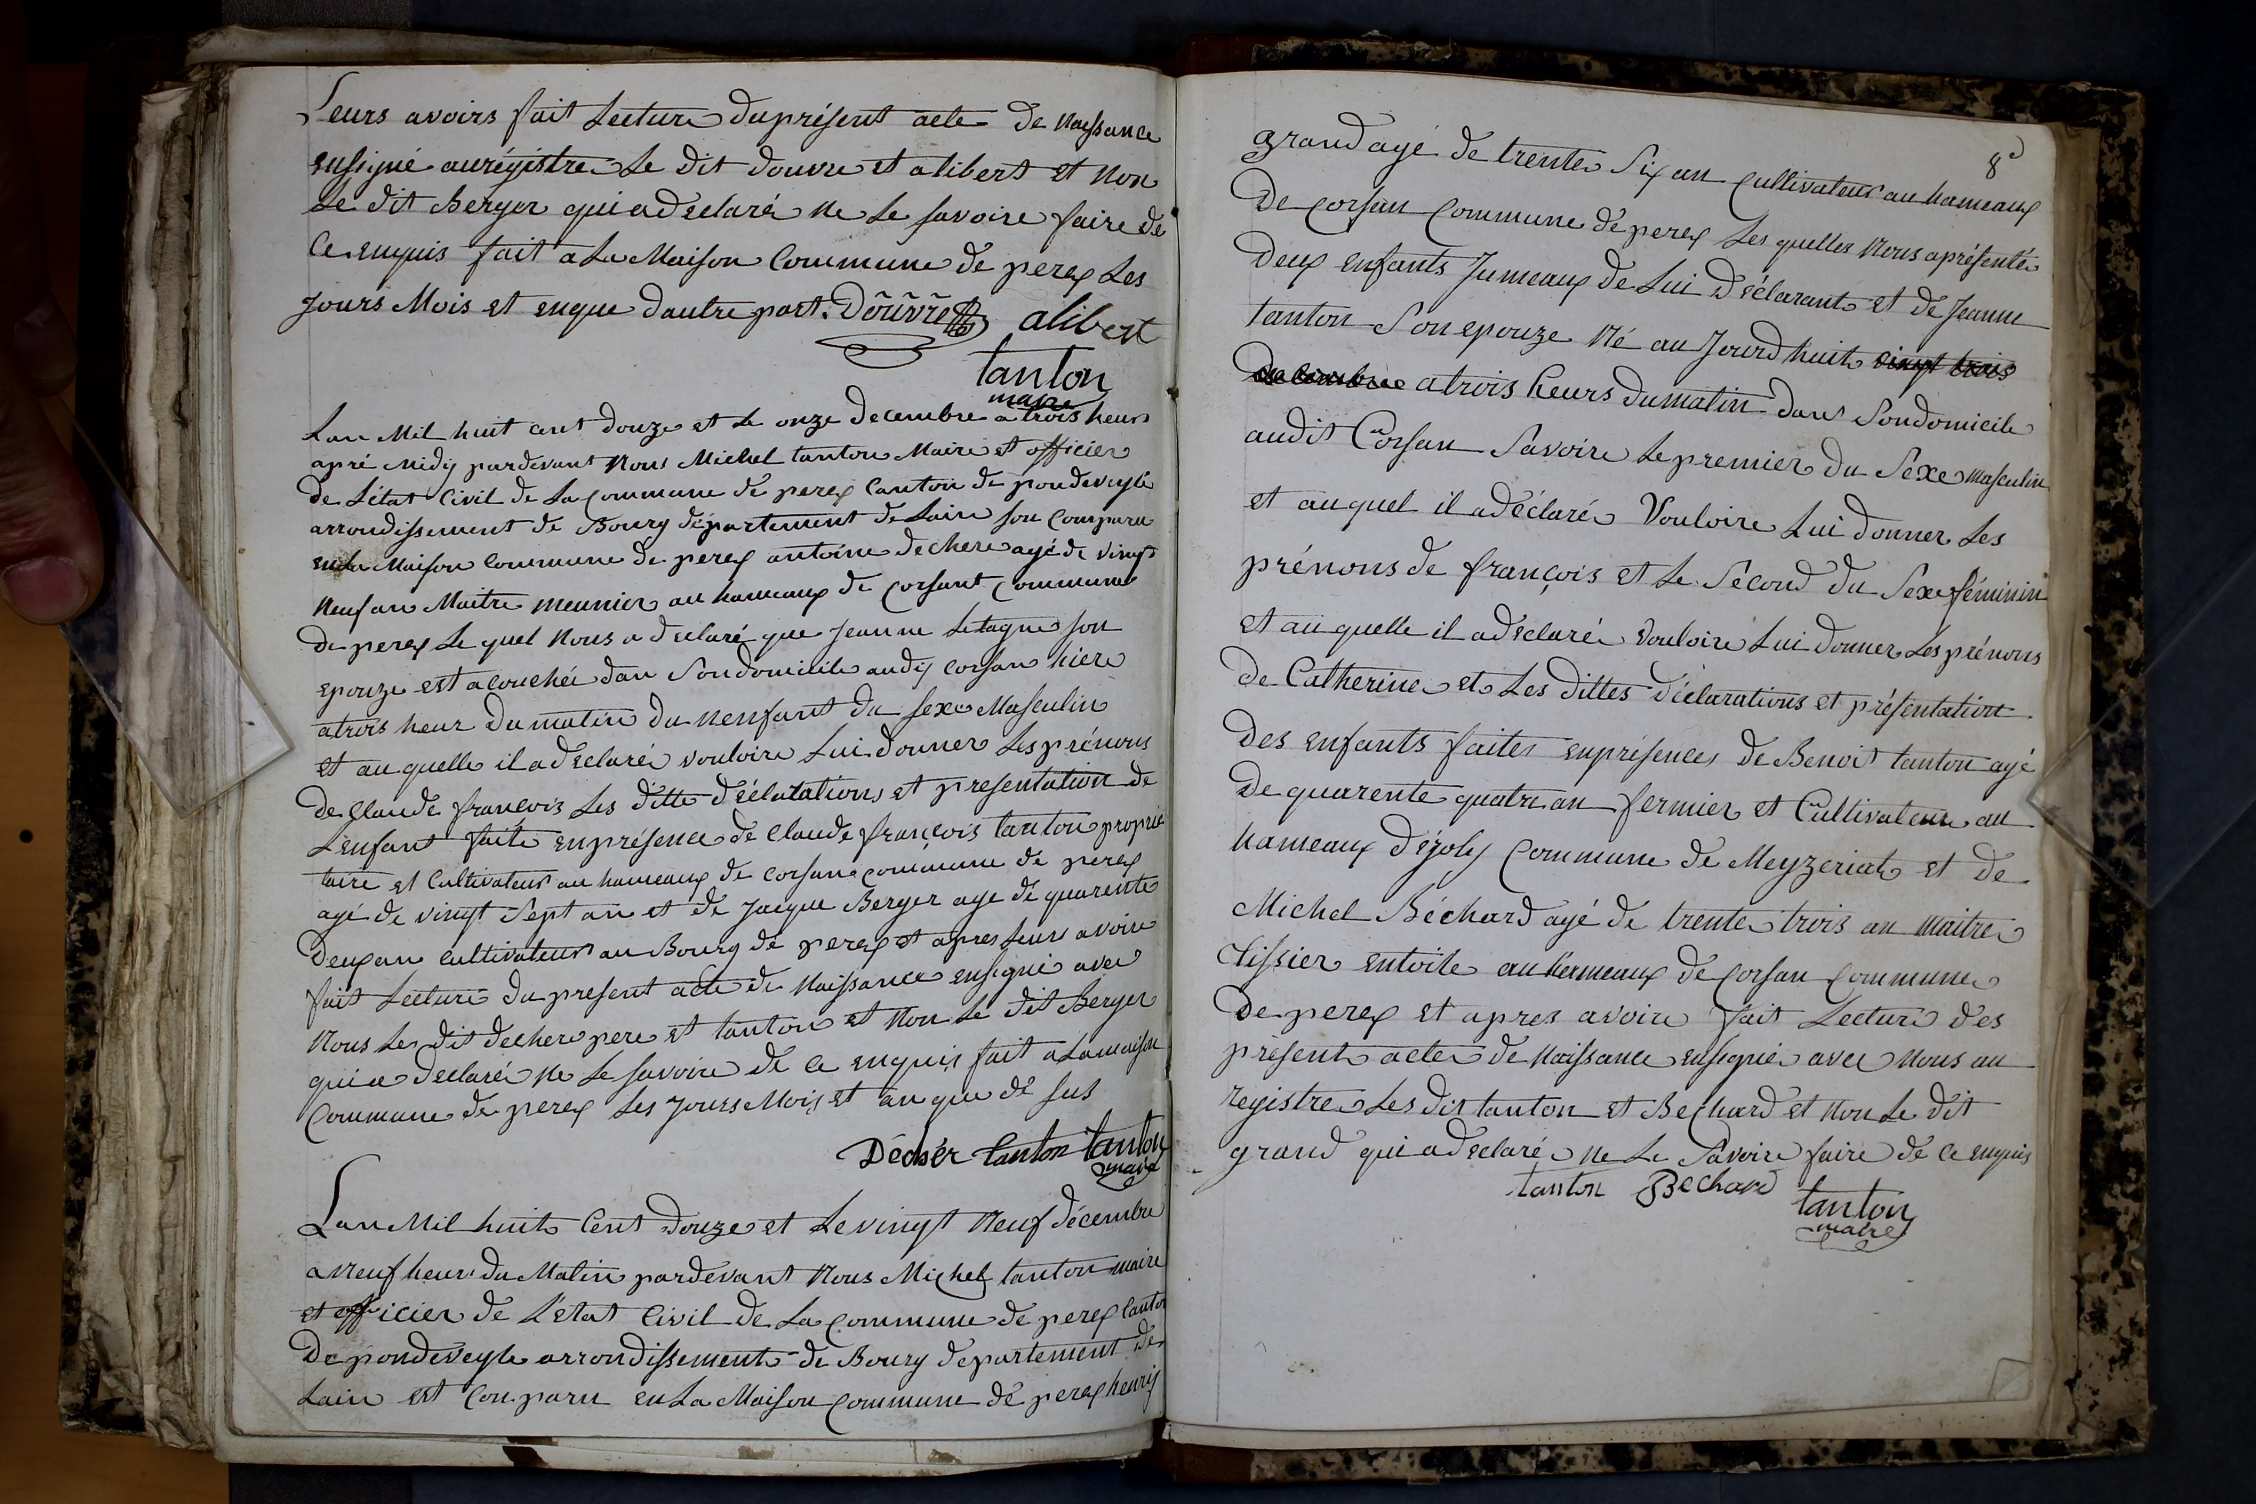 Leurs avoirs fait Lecture duprésent acte de Naissance
ensigné aurégistre Le dit douvre et alibert et Non
Le dit Berger qui adéclaré Ne Le savoire faire de
Ce enquis fait a La Maison Commune de perex Les
Jours Mois et enque dautre part. Douvre alibert
tanton
maire
Lan Mil huit cent douze et Le onze decembre a trois heurs
apré Midij pardevant Nous Michel tanton Maire et officier
de Létat Civil de La Commune de perex Canton de pondeveyle
arrondissement de Bourg département de Lain son Comparu
en La Maison Commune de perex antoine dechere agé de vingt
Neuf an Maitre meunier au hameaux de Corsant Commune
de perex Le quel Nous a declaré que Jeanne Letagne son
epouze est acouchée dan Sondomicile audij Corsan hiere
atrois heur du matin du Nenfant du sexe Masculin
et au quelle il adeclaré vouloire Lui donner Les prénous
de Claude françois Les ditte déclatations et presentation de
Lenfant faite en présence de Claude françois tanton proprié
taire et Cultivateur au hameaux de Corsan Commune de perex
agé de vingt Sept an et de Jacque Berger age de quarente
deux an Cultivateur au Bourg de perex et apres Leurs avoire
fait Lecture du present acte de Naissance ensigné avec
Nous Les dit decher pere et tanton et Non Le dit Berger
qui a declaré Ne Le savoire de Ce enquis fait a Lamaison
Commune de perex Les Jours Mois et an que de sus
Déchér tanton tanton
maire
Lan Mil huit Cent Douze et Levingt Neuf décembre
a Neuf heurs du Matin pardevant Nous Michel tanton maire
et officier de Létat Civil de La Commune de perex Canton
De pondeveyle arrondissement de Bourg departement de
Lain est Comparu en La Maison Commune de perex henrij
8
grand agé de trente Six an Cultivateur au hameaux
De Corsan Commune de perex Les quelles Nous aprésenté
Deux enfants Jumeaux de Lui Déclarant et de Jeanne
tanton Son epouze Né au Jourdhuit vingt trois
decembre atrois heurs dumatin dans Sondomicile
audit Corsan Savoire Le premier du Sexe masculin
et au quel il adéclaré Vouloire Lui donner Les
prénons de françois et Le Second du Sexe féminin
et au quelle il adeclaré vouloire Lui donner Les prénons
de Catherine et Les dittes déclarations et présentation
des enfants faites enprésences de Benoit tanton agé
De quarente quatre an fermier et Cultivateur au
hameaux déjoly Commune de Meyzeriat et de
Michel Béchard agé de trente trois an maitre
tissier entoile au hameaux de Corsan Commune
De perex et apres avoire fait Lecture des
présent actes de Naissance ensignée avec Nous au
registre Les dit tanton et Bechard et Non Le dit
grand qui adeclaré Ne Le Savoire faire de Ce enquis
tanton Bechard
tanton
maire